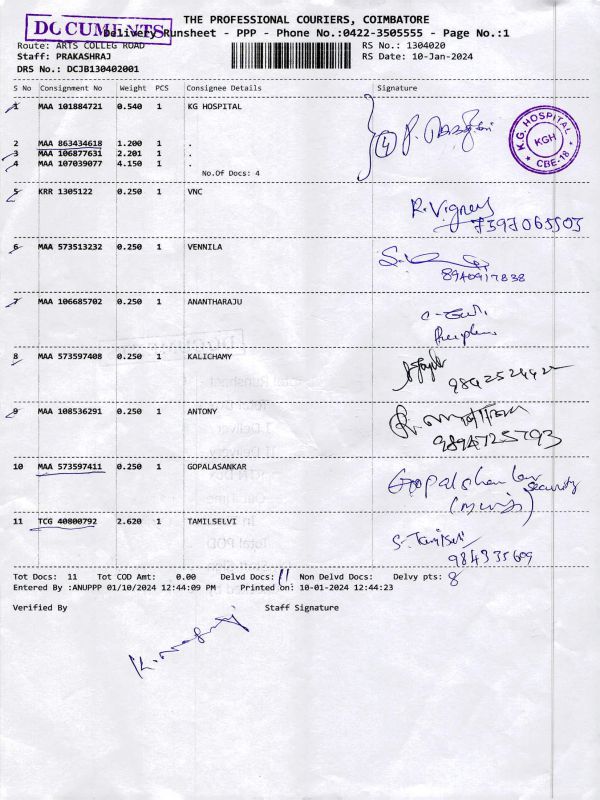 THE PROFESSIONAL COURIERS, COIMBATORE
DOCUMENTS
Delivery Runsheet - PPP - Phone No.:0422-3505555 - Page No.:1
Route: ARTS COLLEG ROAD RS No.: 1304020
Staff: PRAKASHRAJ RS Date: 10-Jan-2024
DRS No.: DCJB130402001
S No Consignment No Weight PCS Consignee Details Signature
1 MAA 101884721 0.540 1 KG HOSPITAL
K.G. HOSPITAL
KGH
CBE-18
4
2 MAA 863434618 1.200 1 .
3 MAA 106877631 2.201 1 .
4 MAA 107039077 4.150 1 .
No.Of Docs: 4
5 KRR 1305122 0.250 1 VNC
R. Vignesh
7397065503
6 MAA 573513232 0.250 1 VENNILA
8940917838
7 MAA 106685702 0.250 1 ANANTHARAJU
8 MAA 573597408 0.250 1 KALICHAMY
9 MAA 108536291 0.250 1 ANTONY
9894725793
10 MAA 573597411 0.250 1 GOPALASANKAR
Security
11 TCG 40800792 2.620 1 TAMILSELVI
S. Tamilselvi
984335609
Tot Docs: 11 Tot COD Amt: 0.00 Delvd Docs: 11 Non Delvd Docs: Delvy pts: 8
Entered By :ANUPPP 01/10/2024 12:44:09 PM Printed on: 10-01-2024 12:44:23
Verified By Staff Signature